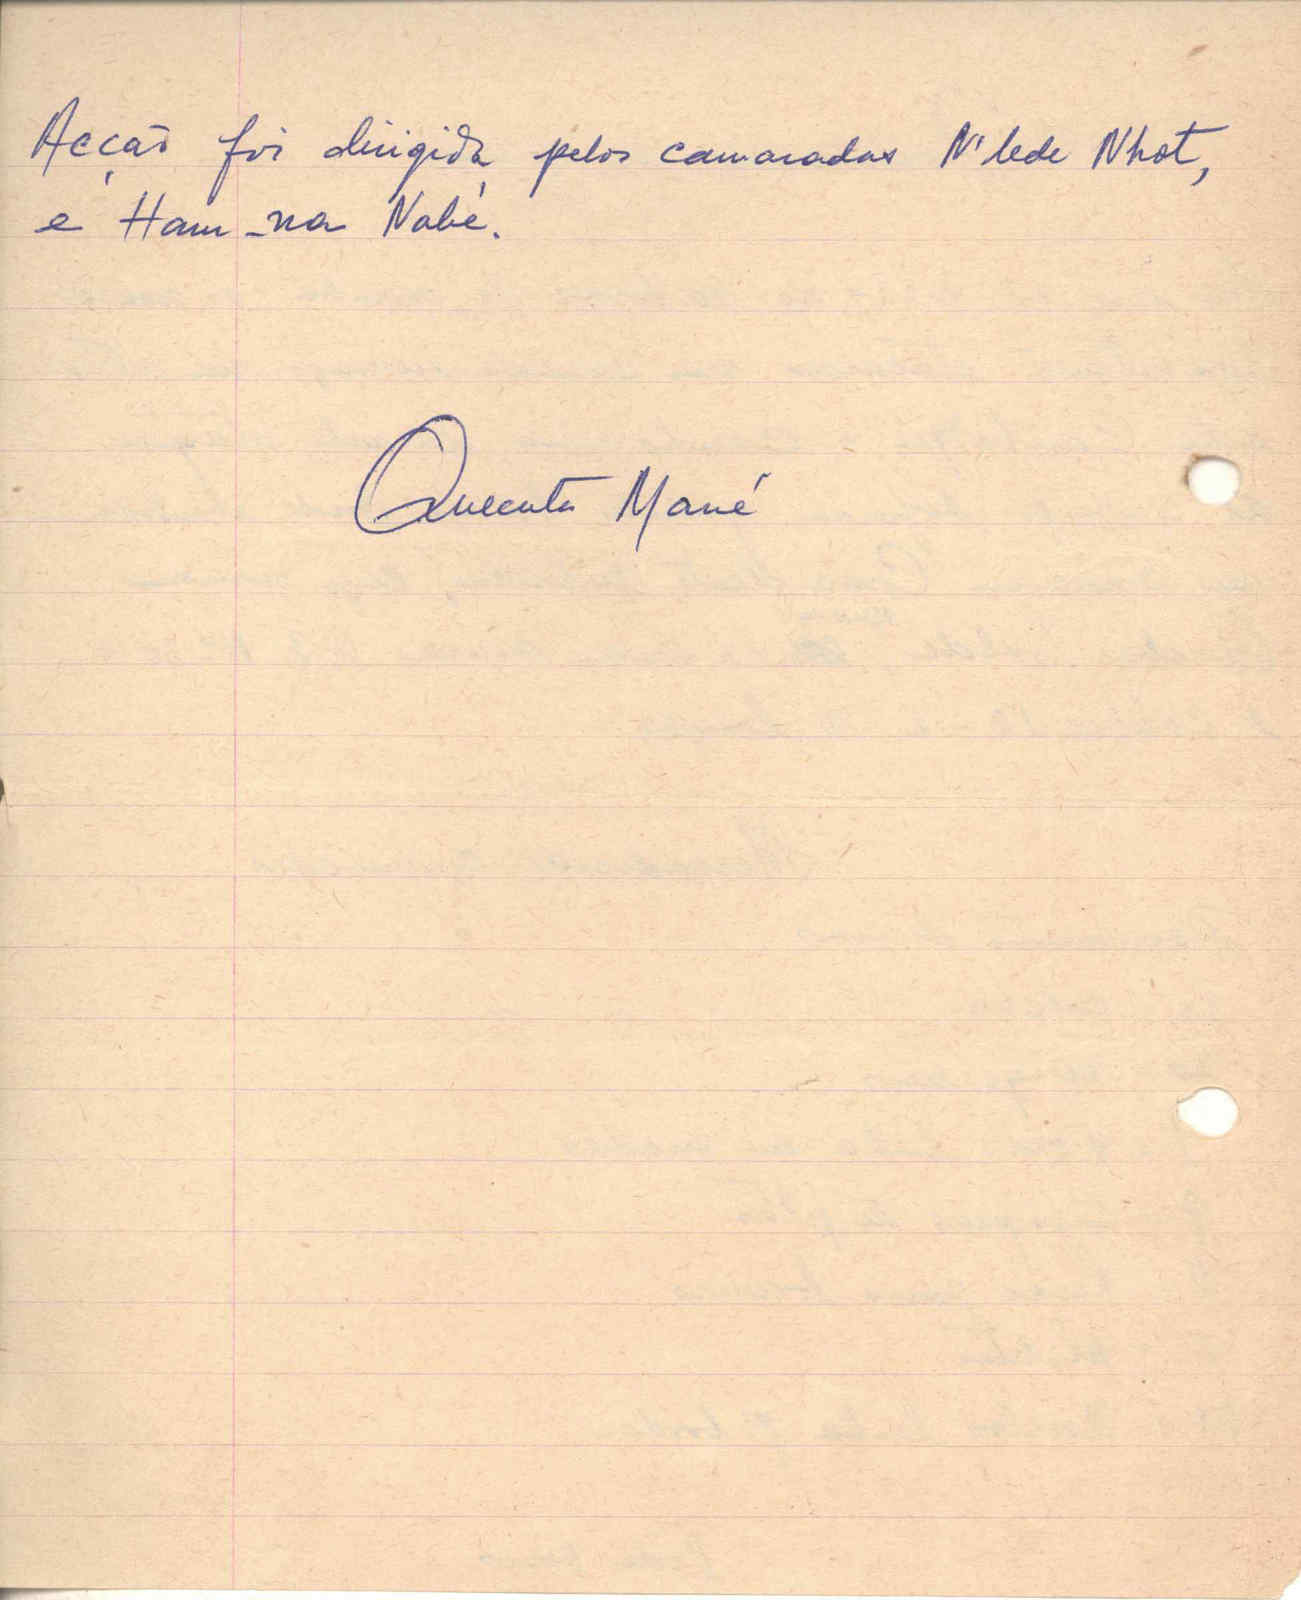 Acção foi dirigida pelos camaradas N'bede Nhot,
e Ham-na Nabé.
Quecuta Mané